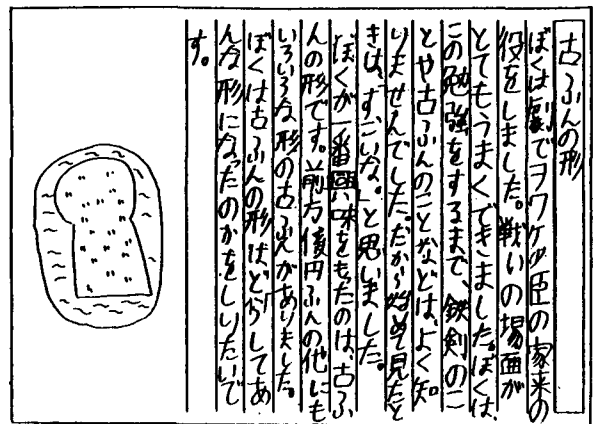 古ふんの形
ぼくは劇でヲワケ臣の家来の
役をしました。戦いの場面が
とてもうまくできました。ぼくは、
この勉強をするまで、鉄剣のこ
とや古ふんのことなどは、よく知
りませんでした。だから始めて見たと
きは、「すごいな。」と思いました。
ぼくが一番興味をもたのは、古ふ
んの形です。前方後円ふんの他にも
いろいろな形の古ふんがありました。
ぼくは古ふんの形はどうしてあ
んな形になったのかをしりたいで
す。